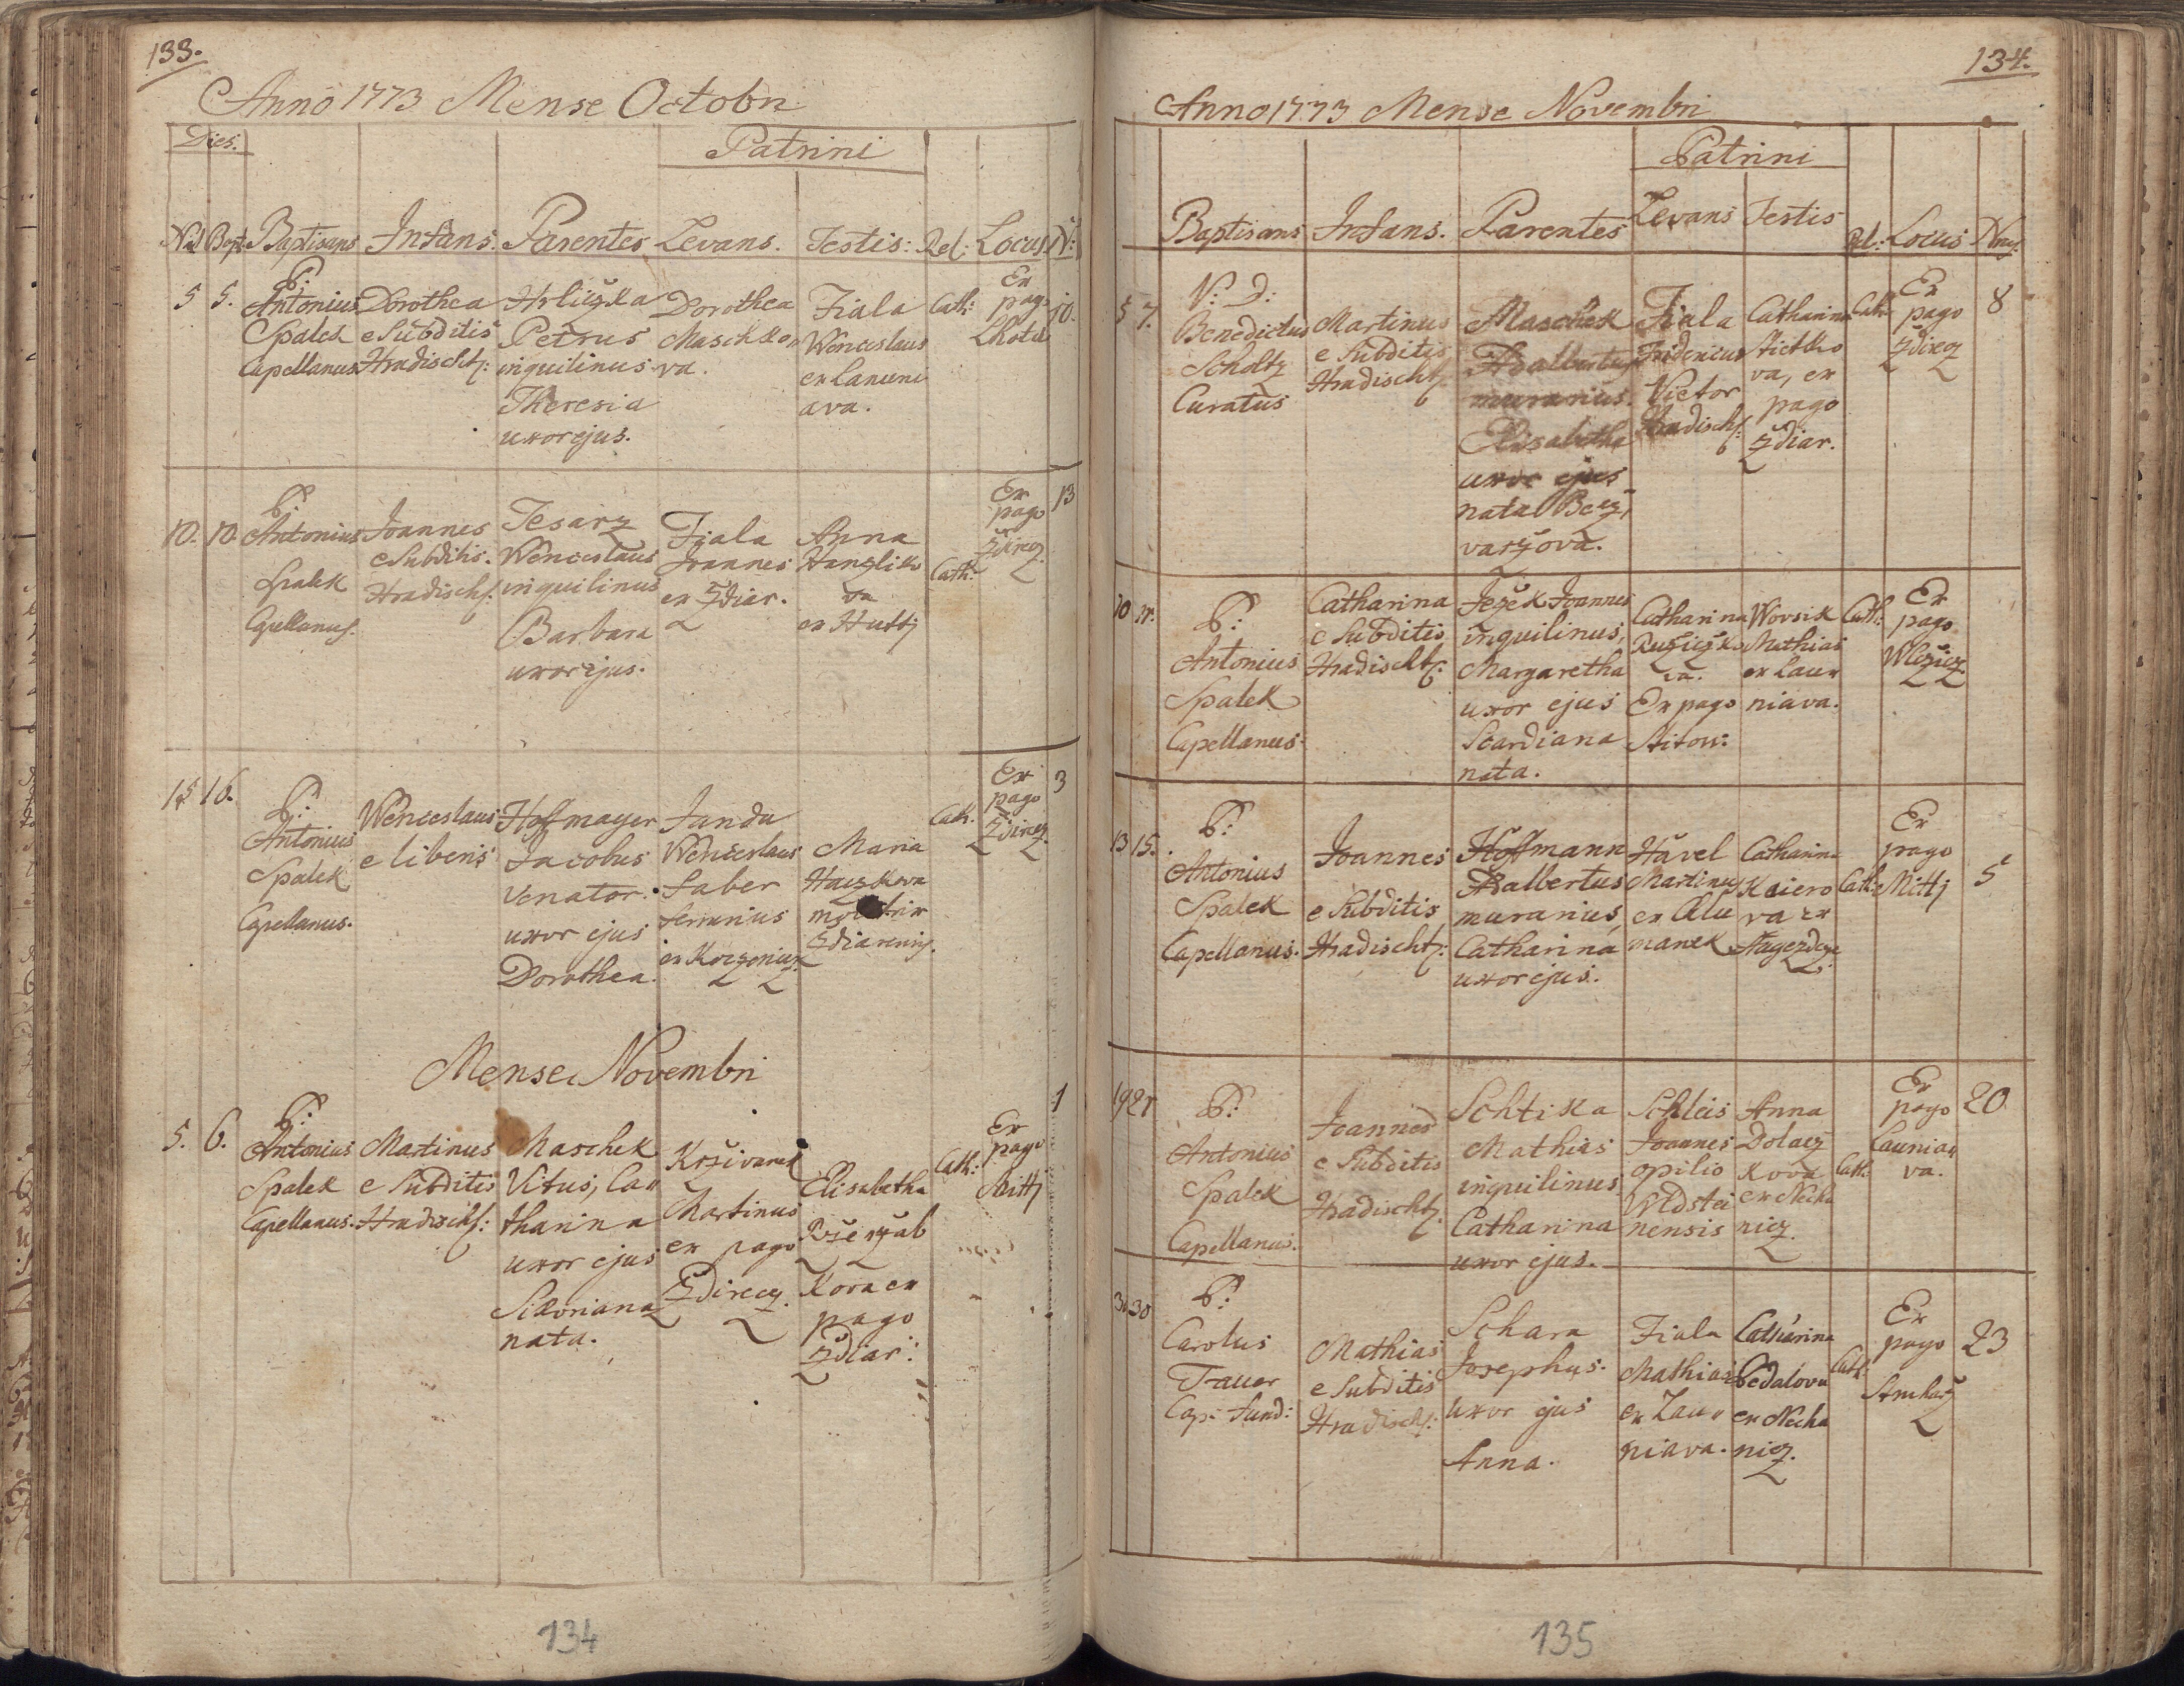 133.
Anno 1773 Mense Octobri
Dies.
Patrini
Nat Bapt. Baptisans Infans. Parentes Levans. Testis: Rel: Locus N:
5 5. P: Antonius Spalek Capellanus
Dorothea e Subditis Hradischt:
Hrliczka Petrus inquilinus Theresia uxor ejus.
Dorothea Maschko„ va.
Fiala Wenceslaus ex Launi ava.
Cath:
Ex pago Lhota
10.
10. 10. P: Antonius Spalek Capellanus.
Joannes e Subditis. Hradisch:
Tesarz Wenceslaus inquilinus Barbara uxor ejus.
Fiala Joannes ex Zdiar.
Anna Hanzliko va ex Hutti
Cath:
Ex pago Zdirez
13
15 16. P: Antonius Spalek Capellanus.
Wenceslaus e liberis
Hoffmayer Jacobus Venator. uxor ejus Dorothea.
Janda Wenceslaus Faber ferrarius
Maria Haczkova Zdiarensis.
Cath.
Ex pago Zdirez
3
Mense Novembri
5. 6. P: Antonius Spalek Capellanus.
Martinus e Subditis Hradisch:
Maschek Vitus, Ca„ tharina uxor ejus Sikoriana nata.
Krziwanek Martinus ex pago Zdirecz.
Elisabetha kova ex pago Zdiar:
Cath:
Ex pago Mitti
1
134
134.
Anno 1773 Mense Novembri
Patrini
Baptisans Infans. Parentes Levans Testis Rel: Locus Nrus.
5 7. V: D: Benedictus Scholtz Curatus
Martinus e Subditis Hradischt:
Maschek Adalbertus murarius. Elisabetha uxor ejus nata Becz, varzova.
Fiala Fridericus Victor Hradisch:
Catharina va, ex pago Zdiar.
Cath:
Ex pago Zdirez
8
10 11. P: Antonius Spalek Capellanus.
Catharina e Subditis Hradischt:
Jezek Joannes inquilinus, Margaretha uxor ejus Scardiana nata.
Catharina Ruziczko va. Ex pago Stitow:
Worsik Mathias ex Lau„ niava.
Cath:
Ex pago Wlczicz
13 15. P: Antonius Spalek Capellanus.
Joannes e Subditis Hradischt:
Hoffmann Adalbertus murarius, Catharina uxor ejus.
Havel Martinus ex Chu manek
Catharina Kaiero va ex
Cath:
Ex pago Mitti
5
19 21 P: Antonius Spalek Capellanus.
Joannes e Subditis Hradischt:
Schtika Mathias inquilinus Catharina uxor ejus.
Schleis Joannes opilio Wildstei nensis
Anna Dolacz kova ex Necha nicz.
Cath:
Ex pago Launia„ va.
20
30 30 P: Carolus Trauer Cap: Fund:
Mathias e Subditis Hradisch:
Schara Josephus. uxor ejus Anna.
Fiala Mathias ex Lau„ niava.
Catharina Pedalova ex Necha nicz.
Cath:
Ex pago
23
135